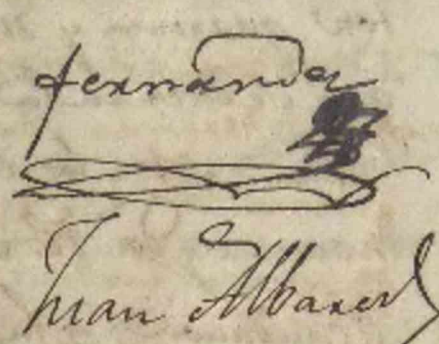 fernandez
Juan Albarez